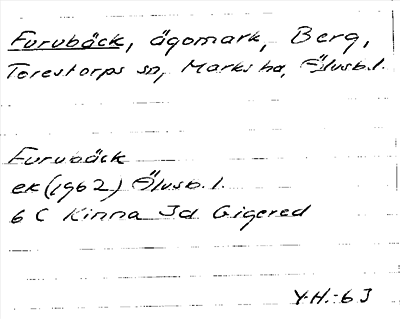 Furubäck, ägomark, Berg,
Torestorps sn, Marks hd, Älvsb. l.
Furubäck
ek (1962) Älvsb. l.
6 C Kinna Jd Gigered
Y.H.:63